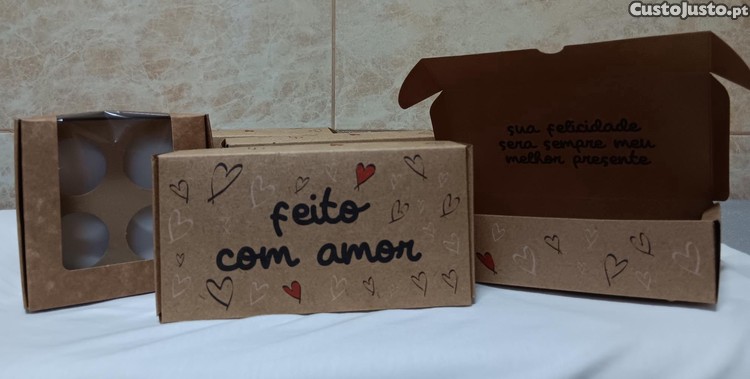 CustoJusto.pt
feito
com amor
sua felicidade
sera sempre meu
melhor presente